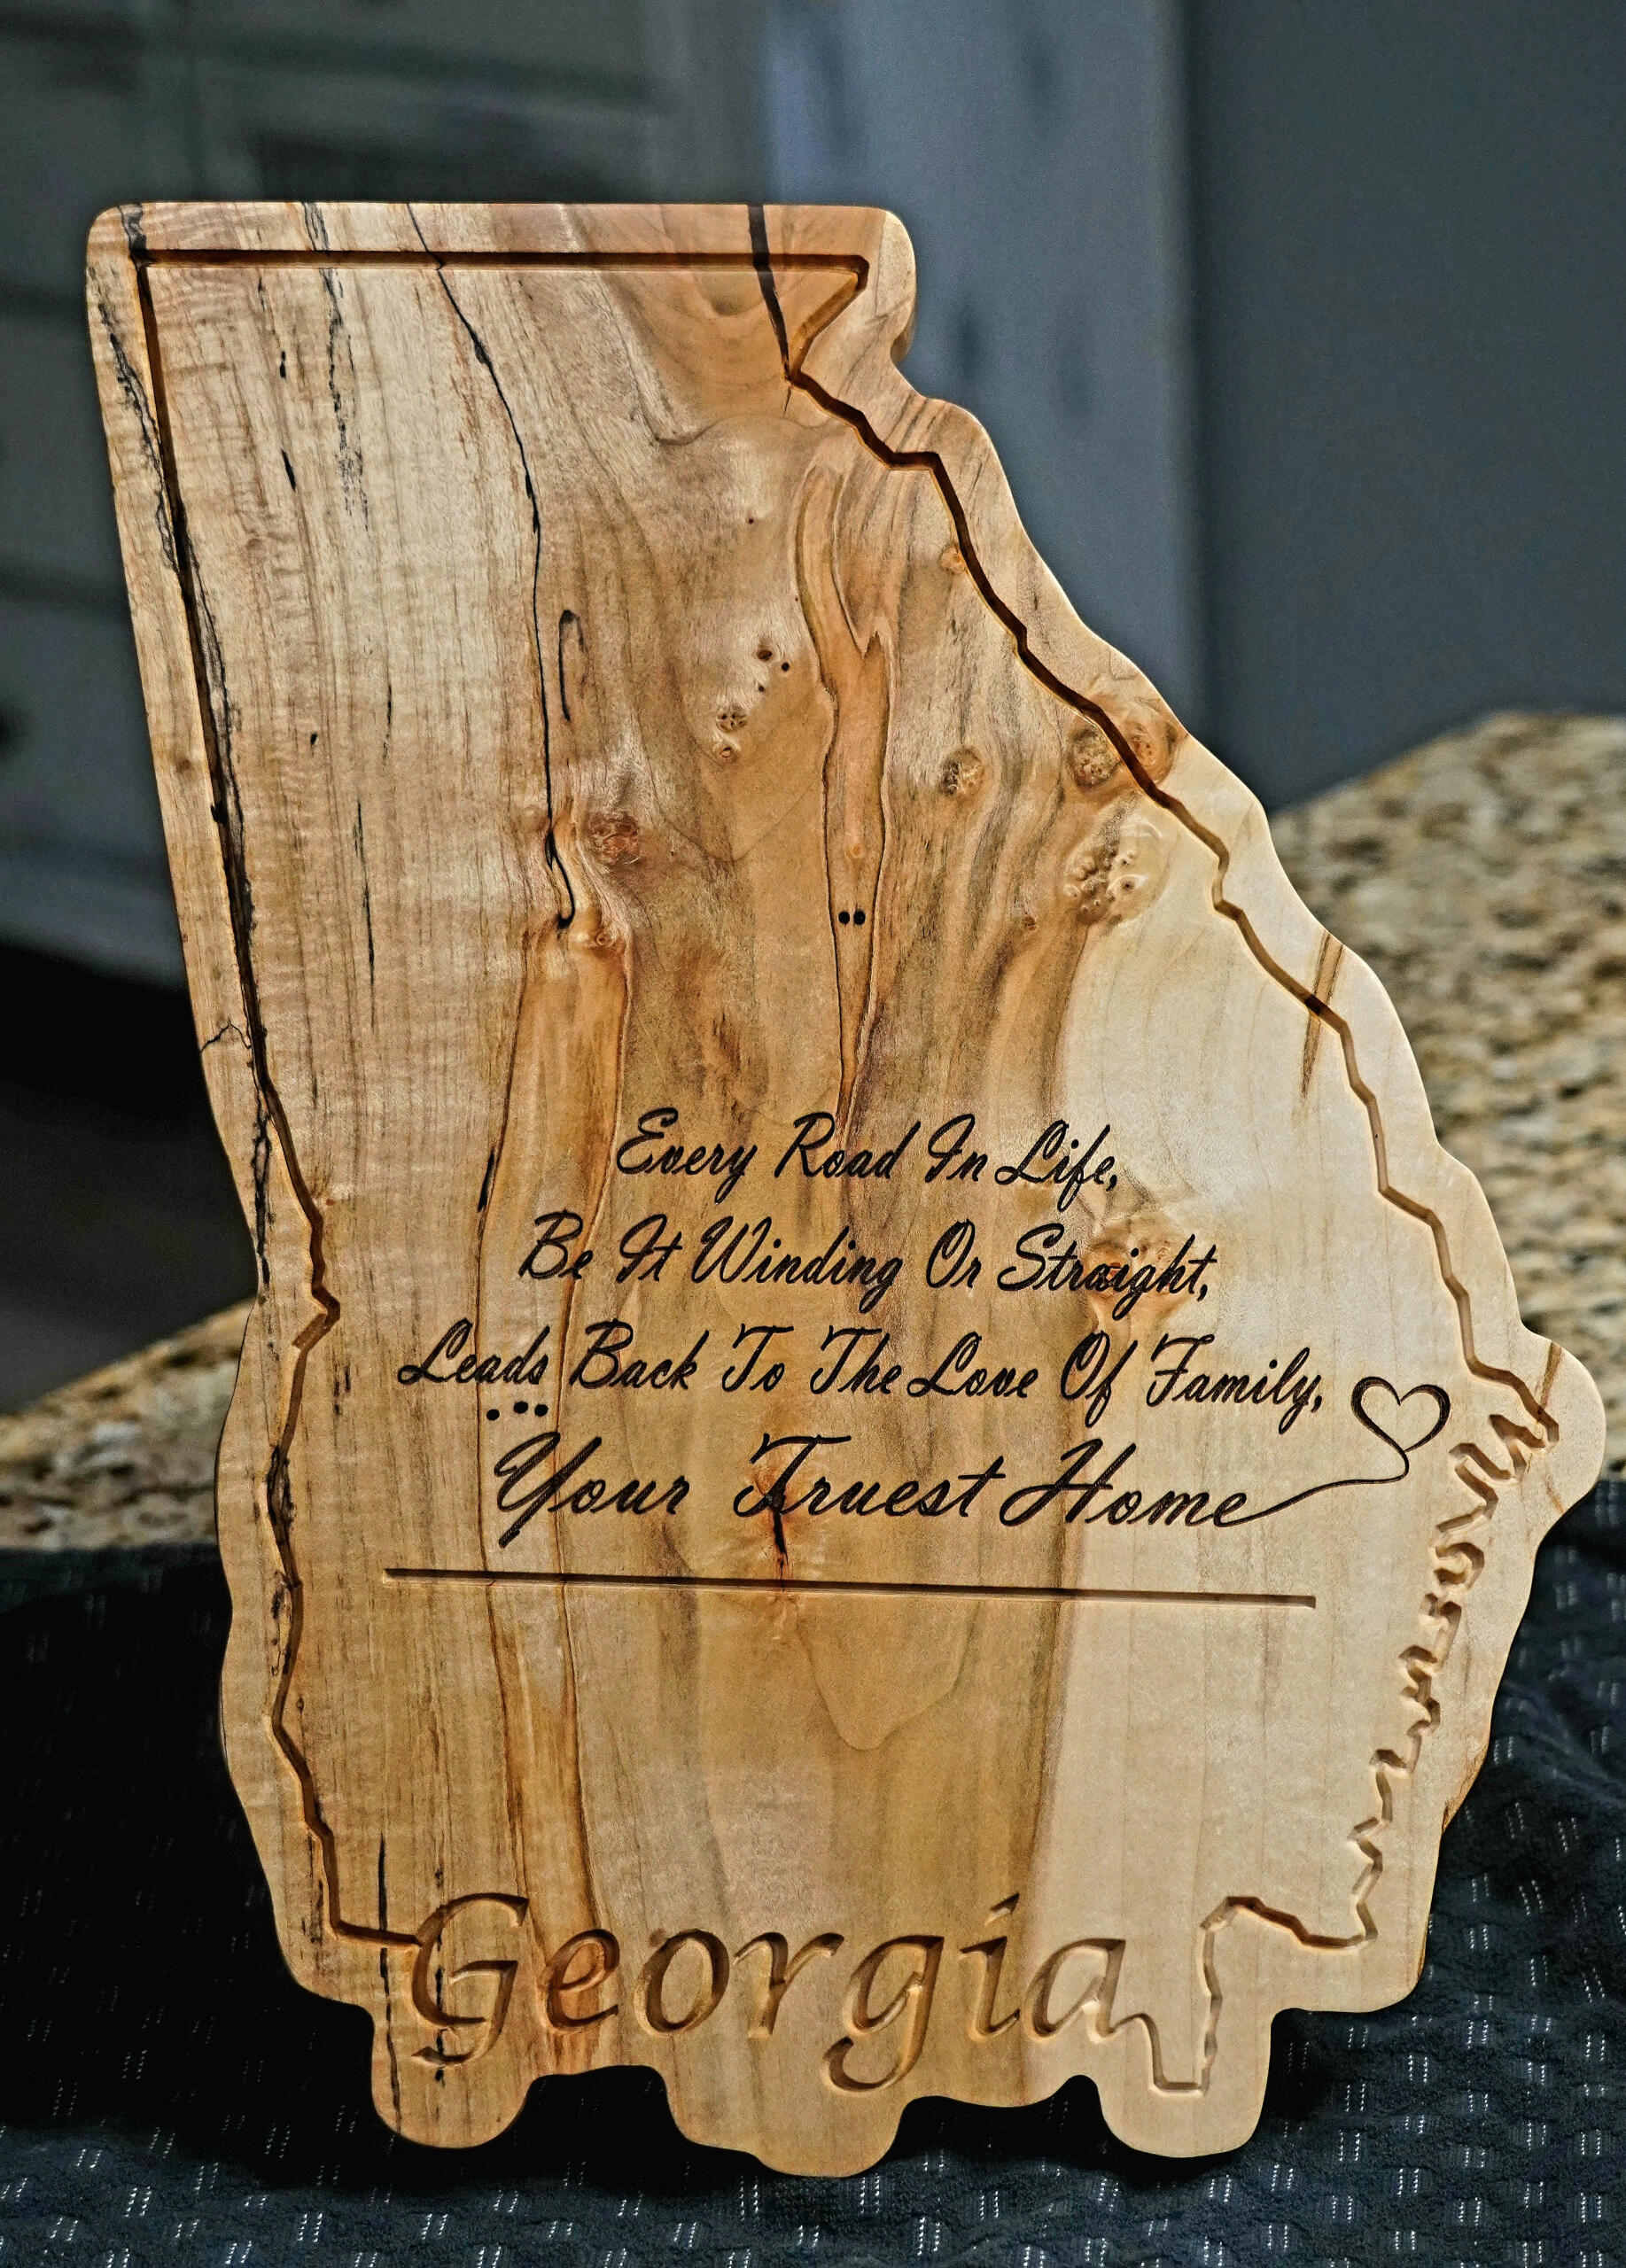 Every Road In Life,
Be It Winding Or Straight,
Leads Back To The Love Of Family,
Your Truest Home
Georgia